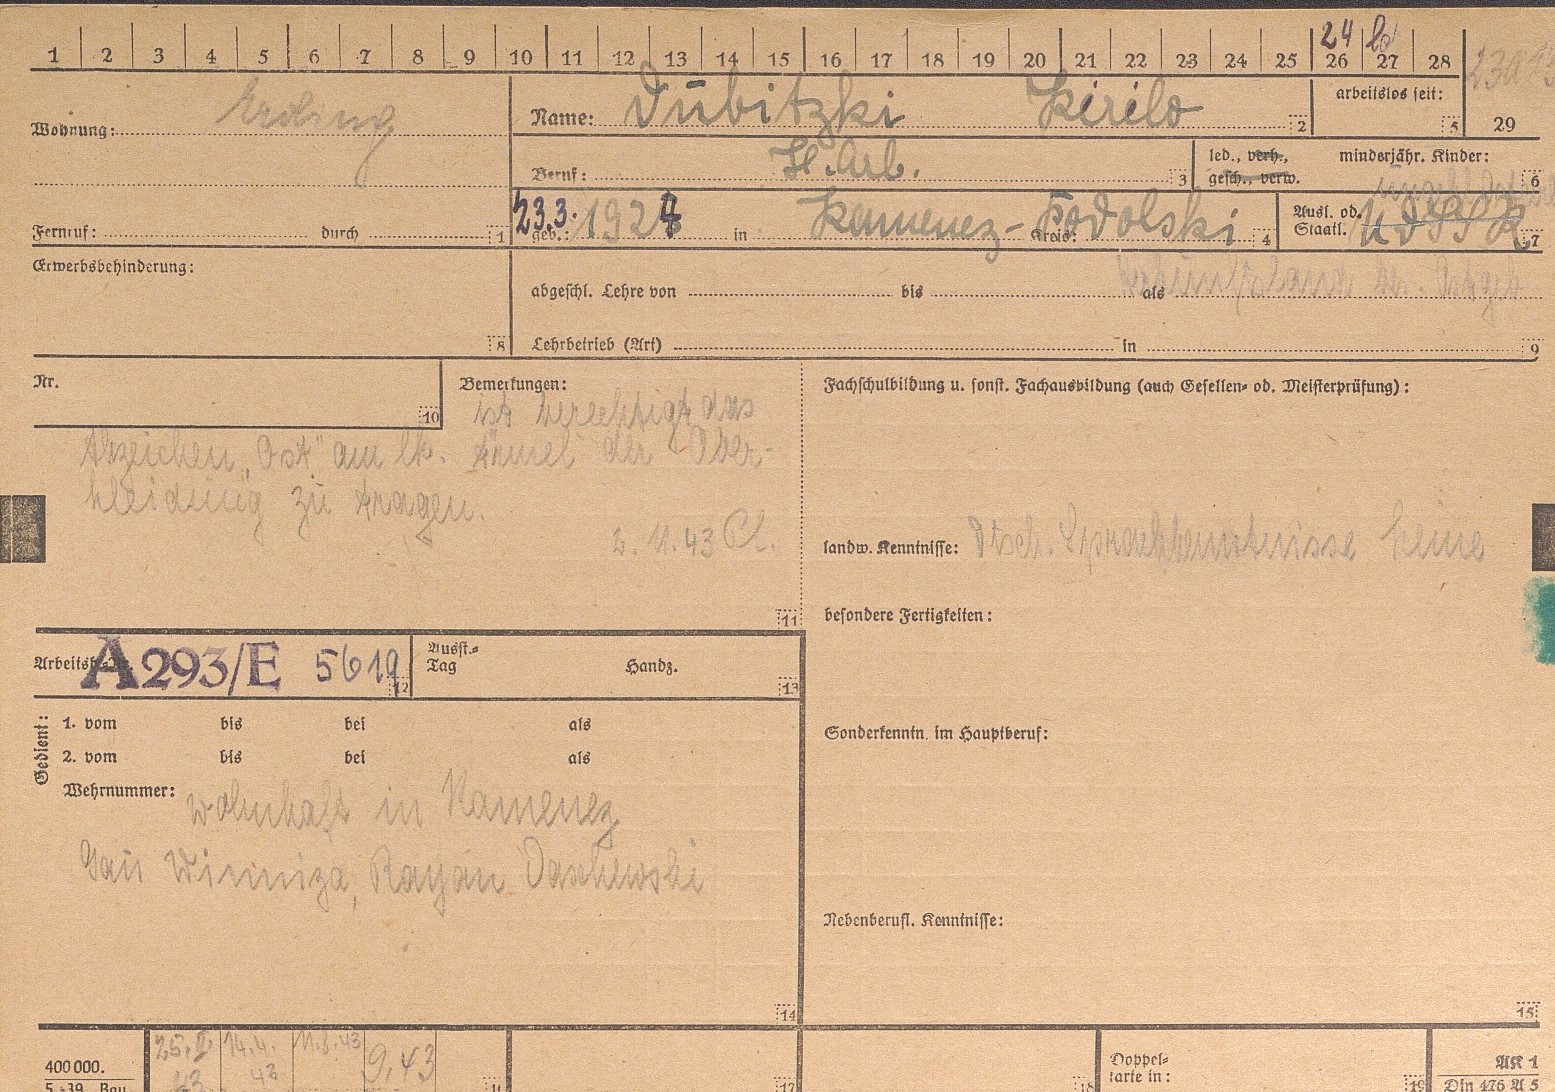 1 2 3 4 5 6 7 8 9 10 11 12 13 14 15 16 17 18 19 20 21 22 23 24 25 26 27 28
24
Wohnung: Erding
Name: Dubitzki Kirilo 2
arbeitslos seit: 5
29
Beruf: H. Arb. 3
led., verh., gesch., verw.
minderjähr. Kinder: 6
Fernruf: durch 1
23.3. geb.: 1924 in Kamenez-Podolski Kreis: 4
Ausl. od. Staatl. UdSSR 7
Erwerbsbehinderung: 8
abgeschl. Lehre von bis als
Lehrbetrieb (Art) in 9
Nr. 10
Bemerkungen:
ist berechtigt das
Abzeichen „Ost" am lk. Ärmel der Ober-
kleidung zu tragen.
2. 11. 43
11
Fachschulbildung u. sonst. Fachausbildung (auch Gesellen- od. Meisterprüfung):
landw. Kenntnisse: Dtsch. Sprachkenntnisse keine
besondere Fertigkeiten:
A 293/E 5619 12
Ausst.-Tag Handz. 13
Gedient:
1. vom bis bei als
2. vom bis bei als
Wehrnummer: wohnhaft in Kamenez
Gau Winniza, Rayan Daschewski
14
Sonderkenntn. im Hauptberuf:
Nebenberufl. Kenntnisse:
15
400 000.
5. 39. Bau
14.4. 43
11.8.43
9.43
17
18
Doppel-
karte in: 19
AK 1
Din 476 A 5